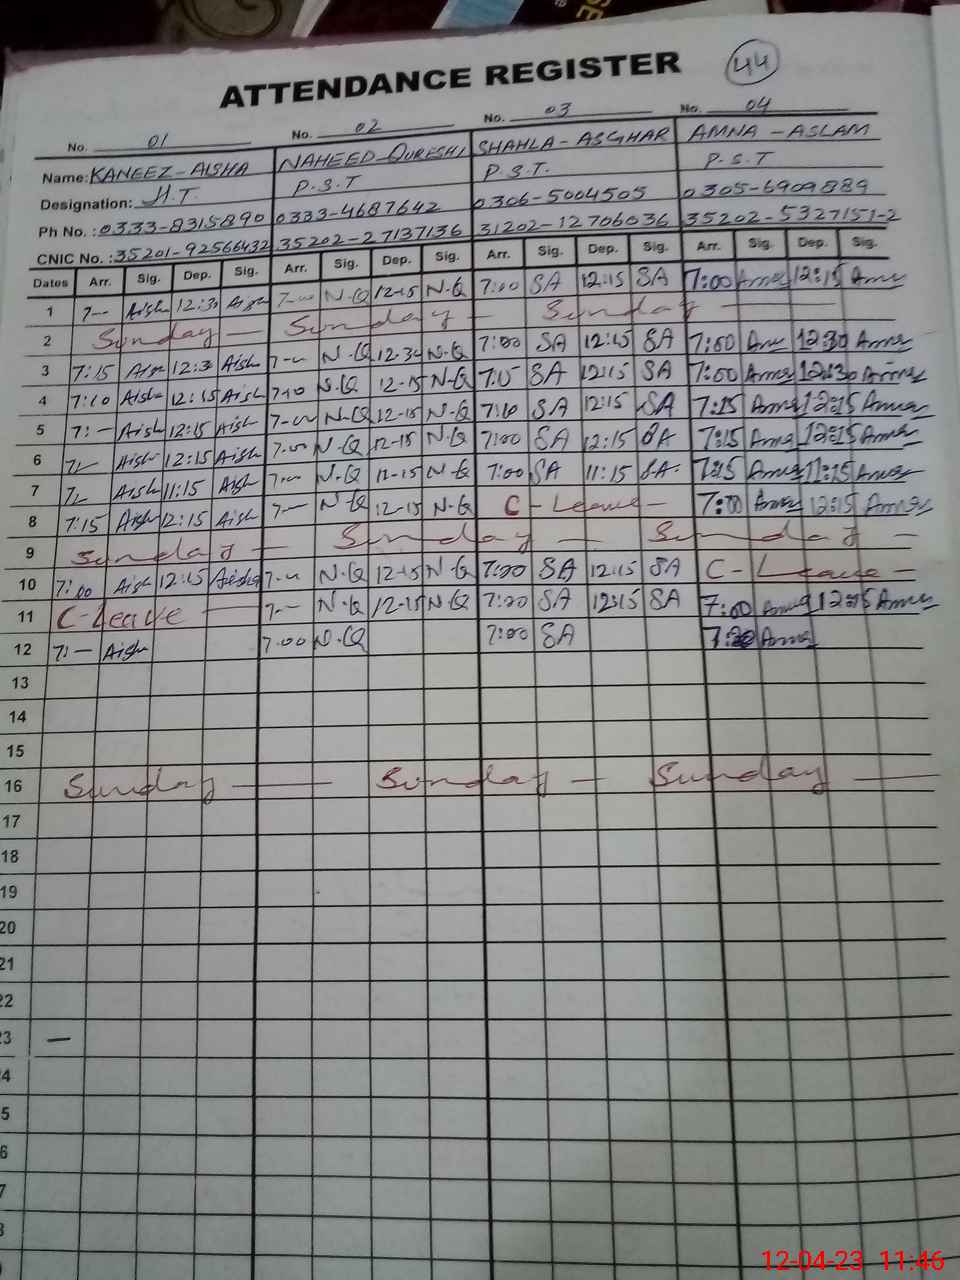 ATTENDANCE REGISTER 44
No. 01 No. 02 No. 03 No. 04
Name: KANEEZ-AISHA NAHEED QURESHI SHAHLA-ASGHAR AMNA-ASLAM
Designation: H.T. P.S.T P.S.T. P.S.T
Ph No.: 0333-8315890 0333-4687642 0306-5004505 0305-6909889
CNIC No.: 35201-92566432 35202-27137136 31202-12706036 35202-5327151-2
Dates Arr. Sig. Dep. Sig. Arr. Sig. Dep. Sig. Arr. Sig. Dep. Sig. Arr. Sig. Dep. Sig.
1 7-- Aisha 12:3 Aish 7-00 N-Q 12-15 N-Q 7:00 SA 12:15 SA 7:00 Amna 12:15 Amna
2 Sunday — Sunday — Sunday —
3 7:15 Aish 12:3 Aish 7-00 N-Q 12-30 N-Q 7:00 SA 12:15 SA 7:00 Amna 12:30 Amna
4 7:10 Aisha 12:15 Aish 7-10 N-Q 12-15 N-Q 7:15 SA 12:15 SA 7:00 Amna 12:30 Amna
5 7:- Aish 12:15 Aish 7-00 N-Q 12-15 N-Q 7:10 SA 12:15 SA 7:15 Amna 12:15 Amna
6 Aish 12:15 Aish 7-00 N-Q 12-15 N-Q 7:00 SA 12:15 SA 7:15 Amna 12:15 Amna
7 Aish 11:15 Aish 7-- N-Q 11-15 N-Q 7:00 SA 11:15 SA. 7:15 Amna 11:15 Amna
8 7:15 Aish 12:15 Aish 7-- N-Q 12-15 N-Q C-Leave- 7:00 Amna 12:15 Amna
9 Sunday — Sunday — Sunday -
10 7:00 Aish 12:15 Aisha 7-- N-Q 12-15 N-Q 7:00 SA 12:15 SA C-Leave-
11 C-Leave — 7-- N-Q 12-15 N-Q 7:00 SA 12:15 SA 7:00 Amna 12:15 Amna
12 7:- Aish 7:00 N-Q 7:00 SA Amna
13
14
15
16 Sunday — Sunday — Sunday —
17
18
19
20
21
22
3 —
4
5
6
7
12-04-23 11:46